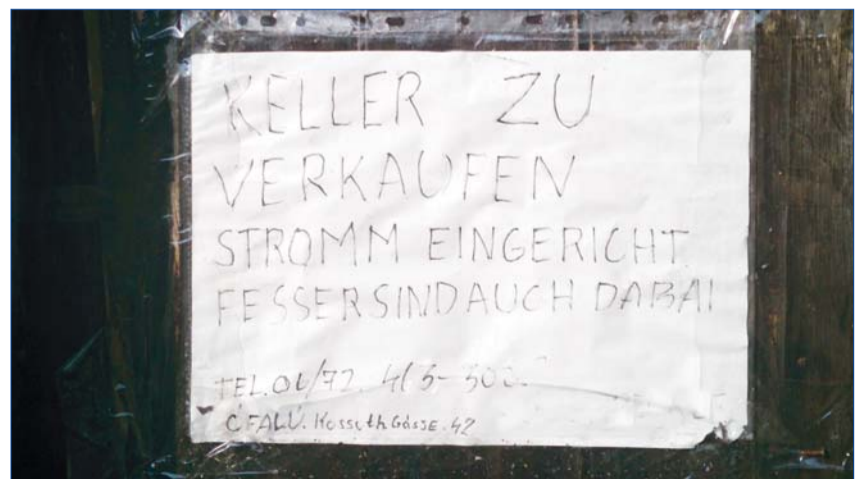 KELLER ZU
VERKAUFEN
STROMM EINGERICHT.
FESSER SIND AUCH DABAI
TEL.
CFALU. Kossuth Gásse. 42